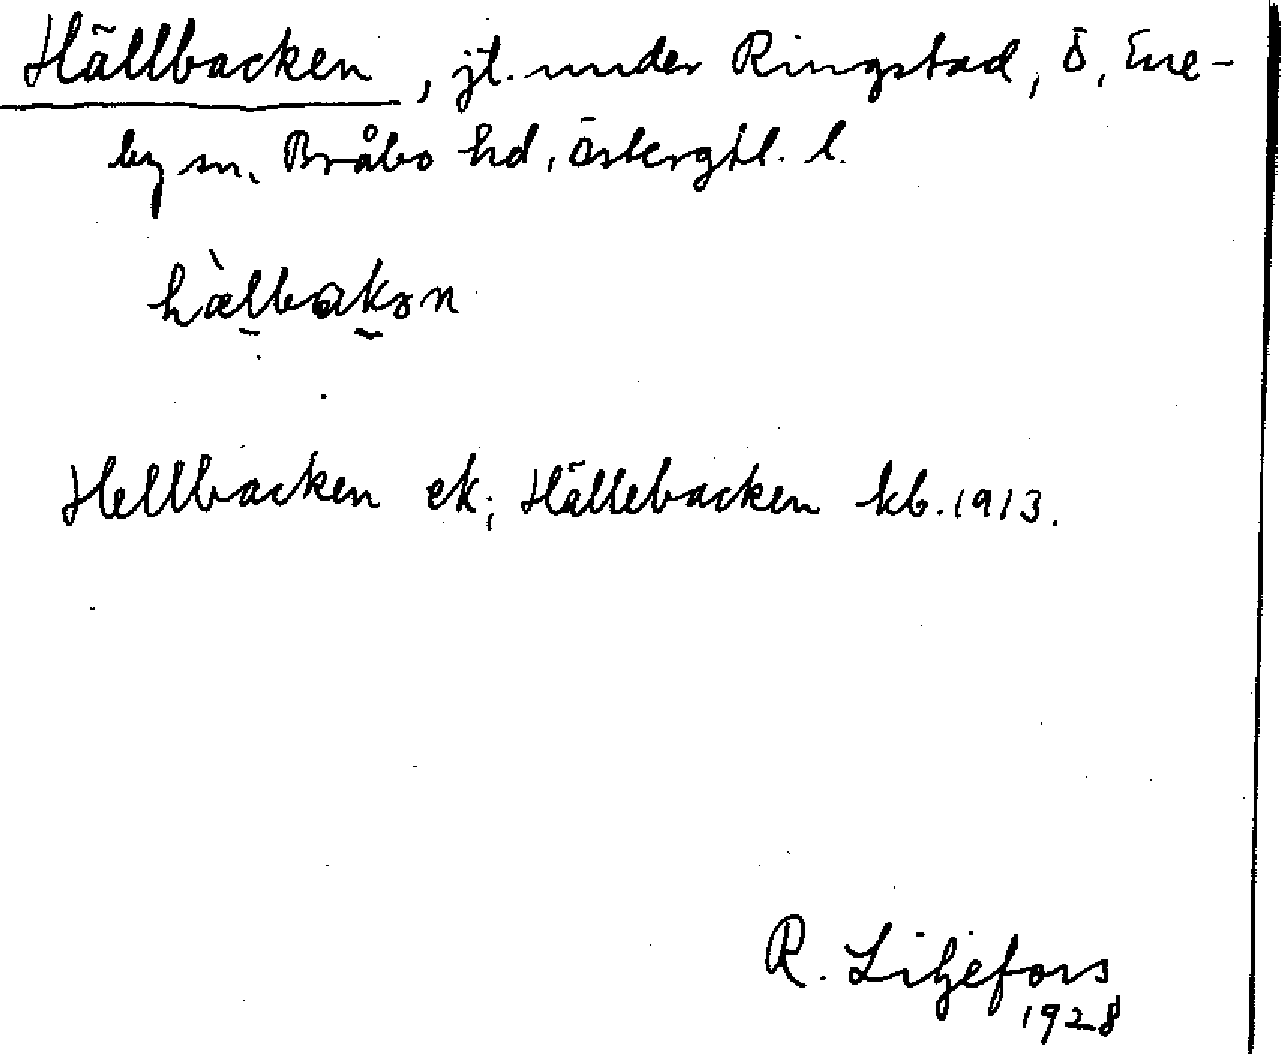 Hällbacken, jt. under Ringstad, Ö. Ene-
by sn. Bråbo hd, Östergtl. l.
hàlbakən
Hellbacken ek; Hällebacken kb. 1913.
R. Liljefors
1928